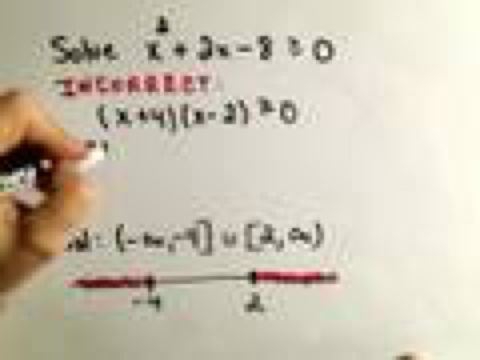 Solve x² + 2x - 8 ≥ 0
INCORRECT:
(x+4)(x-2) ≥ 0
: (-∞,-4] ∪ [2,∞)
-4 2